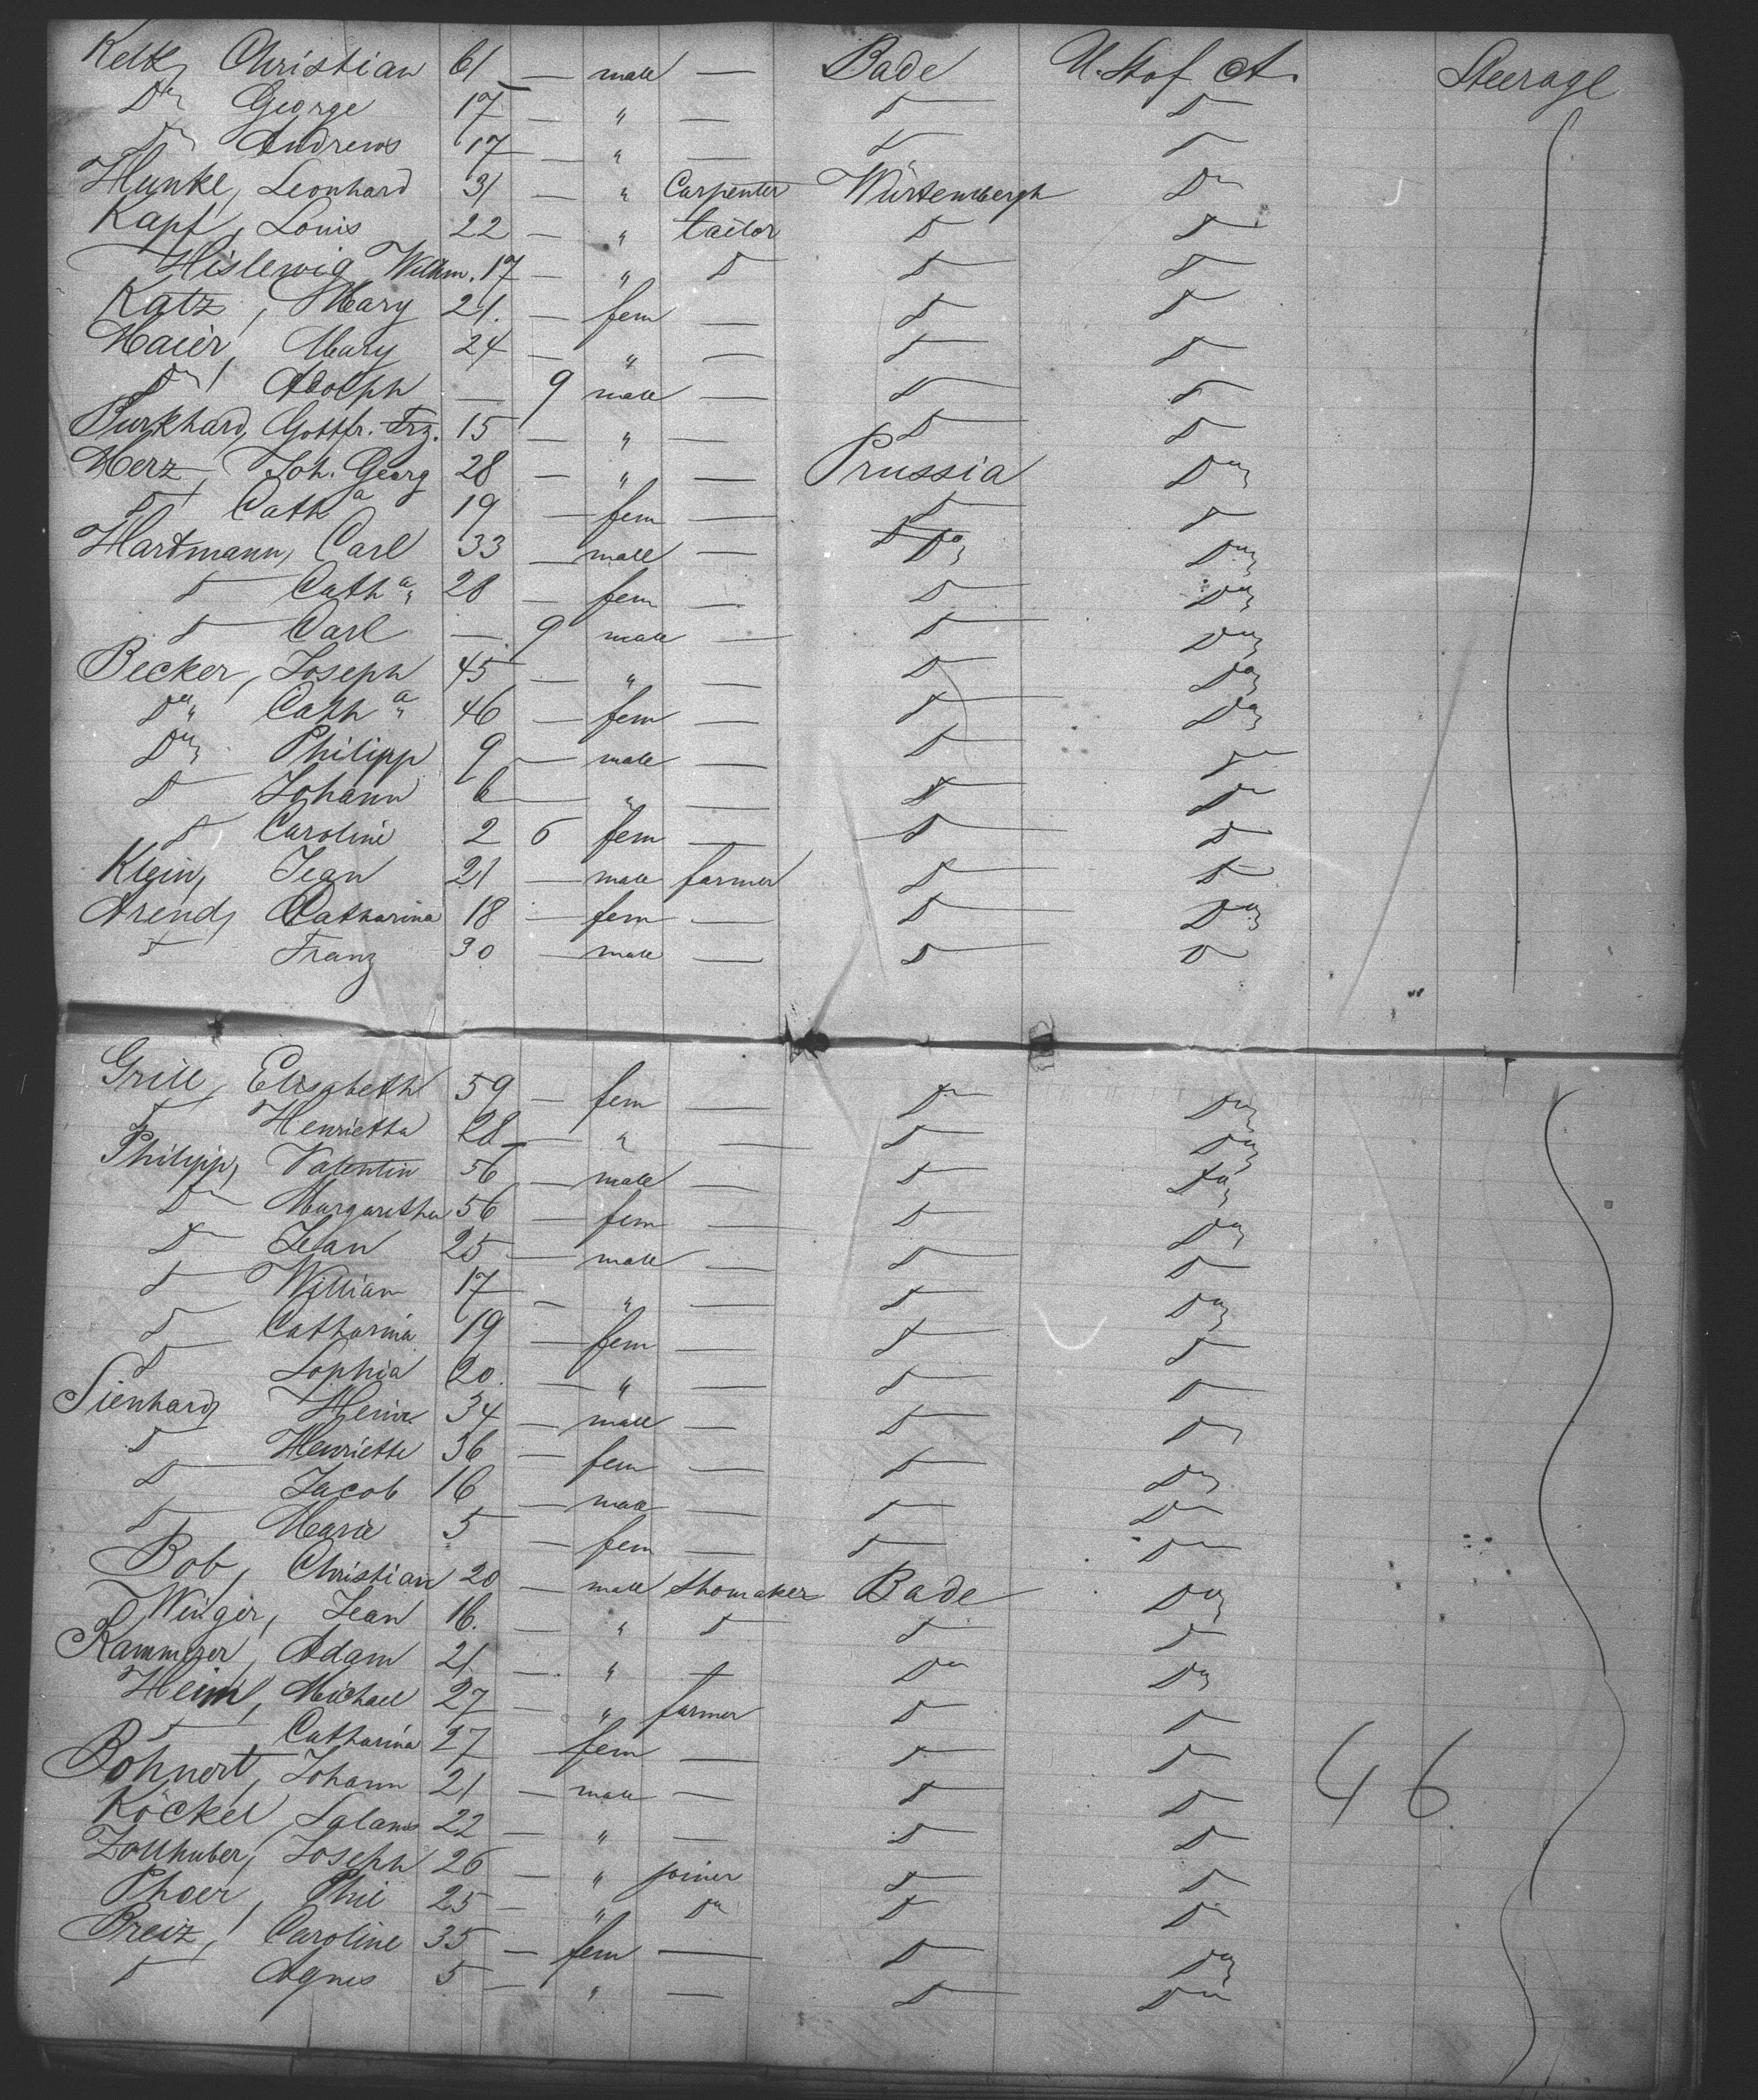 Kelk, Christian 61 — male — Bade U. St of A. Steerage
Do George 17 — " — D D
Do Andrews 17 — " — D D
Hunke, Leonhard 31 — " Carpenter Würtembergh Do
Kapf, Louis 22 — " tailor D D
Hislewig Wilhm. 17 — " D D D
Katz, Mary 21. — fem — D D
Maier, Mary 24 — " — D D
Do Adolph — 9 male — D D
Burkhard, Gottfr. Frz. 15 — " — D D
Merz, Joh. Georg 28 — " — Prussia Do
D Catha 19 — fem — D D
Hartmann, Carl 33 — male — Do Do
D Catha 28 — fem — D Do
D Carl — 9 male — D Do
Becker, Joseph 45 — " — D Do
Do Catha 46 — fem — D Do
Do Philipp 9 — male — D D
D Johann 6 — " — D D
D Caroline 2 6 fem — D D
Klein, Jean 21 — male farmer D D
Arend, Catharina 18 — fem — D Do
D Franz 30 — male — D D
Grill, Elisabeth 59 — fem — D Do
D Henrietta 28 — " — D Do
Philipp, Valentin 56 — male — D Do
D Margaretha 56 — fem — D Do
D Jean 25 — male — D D
D William 17 — " — D Do
D Catharina 19 — fem — D D
D Sophia 20. — " — D D
Sienhard, Heinr. 34 — male — D D
D Henriette 36 — fem — D Do
D Jacob 16 — male — D D
D Marie 5 — fem — D D
Bob, Christian 20 — male shomaker Bade Do
Winger, Jean 16. — " D D D
Kammerer, Adam 21 — " — Do Do
Heim, Michael 27 — " farmer D D
D Catharina 27 — fem — D D
Bohnert, Johann 21 — male — D D
46
Köckel, 22 — " — D D
Zollhuber, Joseph 26 — " joiner D D
Phoer, Phil 25 — " Do D D
Preiz, Caroline 35 — fem — D Do
D Agnes 5 — " — D Do